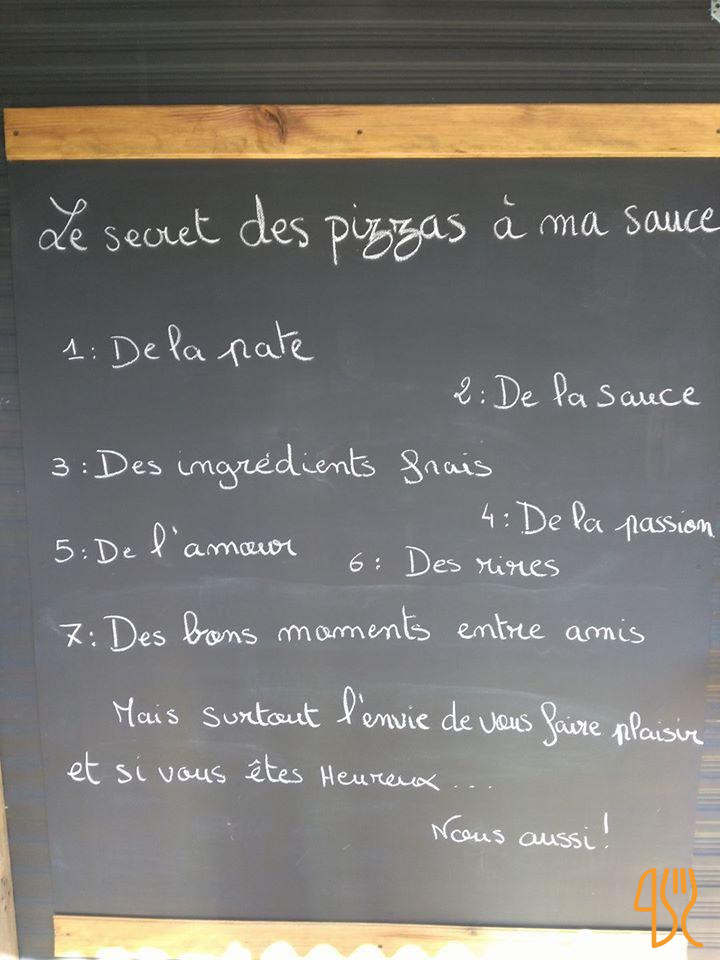 Le secret des pizzas à ma sauce
1: De la pate
2: De la sauce
3: Des ingrédients frais
4: De la passion
5: De l'amour
6: Des rires
7: Des bons moments entre amis
Mais surtout l'envie de vous faire plaisir
et si vous êtes Heureux ...
Nous aussi!